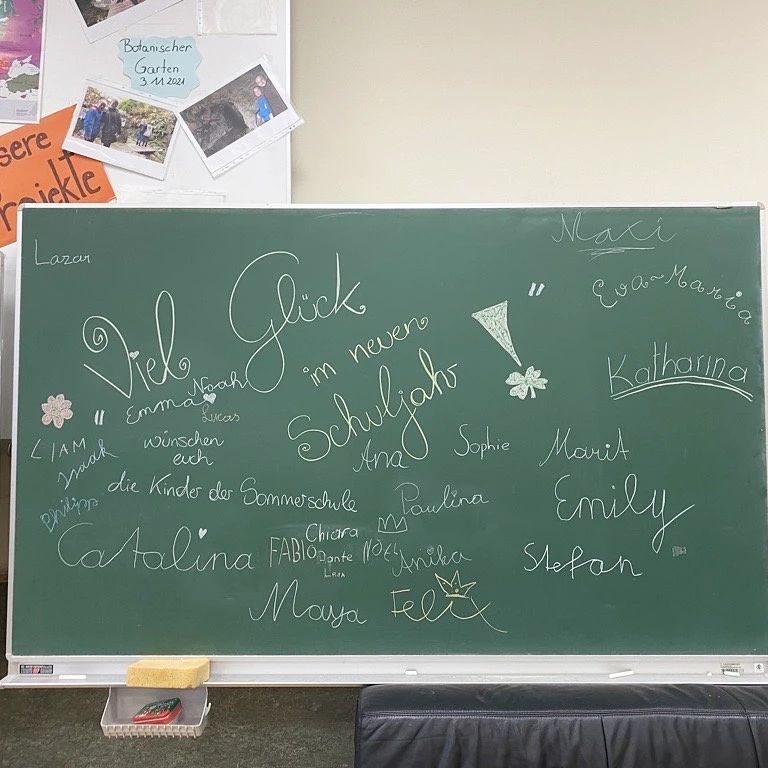 Botanischer
Garten
3.11.2021
sere
rojekte
Lazar
Maxi
Eva-Maria
Katharina
"Viel Glück
im neuen
Schuljahr!"
Noah
Emma
Lucas
LIAM
wünschen
euch
die Kinder der Sommerschule
Isaak
Philipp
Ana
Sophie
Marit
Paulina
Emily
Catalina
Chiara
FABIO
Dante
Noel
Anika
Stefan
Maya
Felix